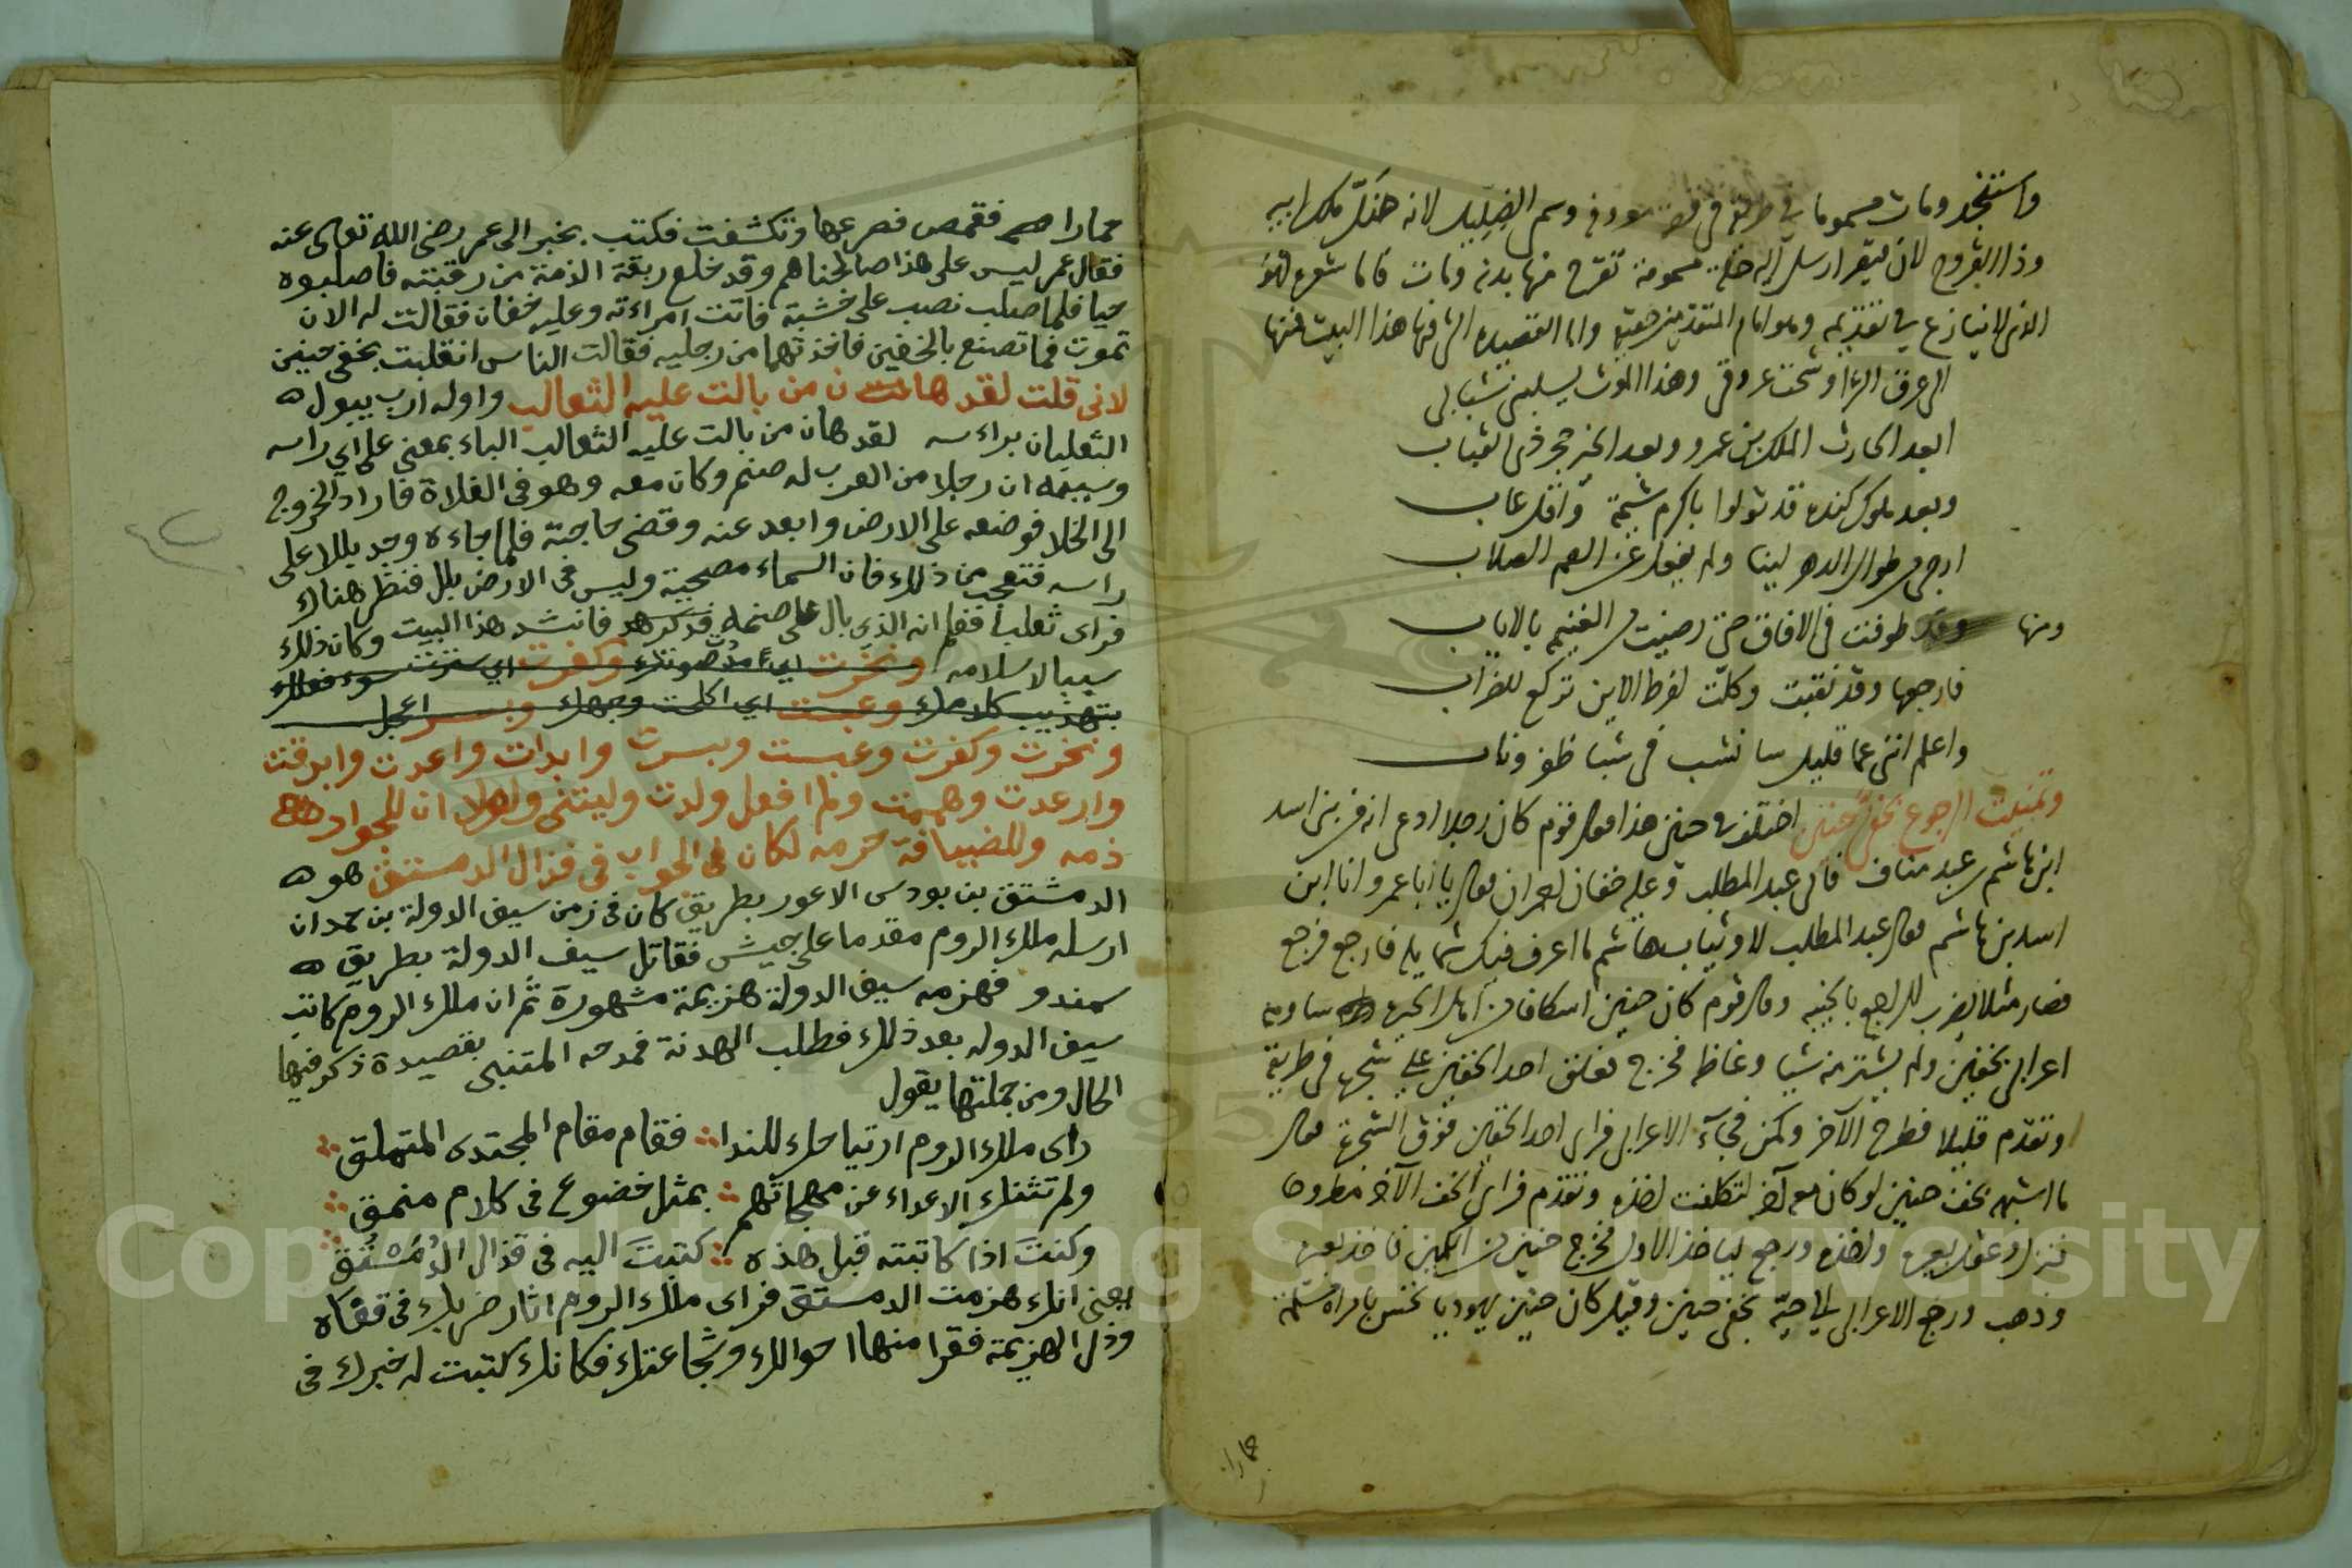 واستنجد ومات مسموما في طريقه في وسمى الضليل لانه ضلل ملك ابيه
وذا القروح لان قيصر ارسل اليه حلة مسمومة تقرح منها بدنه ومات فاما شعره فهو
الذي لا ينازع في تقديمه وهو امام المتقدمين واما القصيده التي فيها هذا البيت فمنها
الى عرق الثرا وشجت عروقي وهذا الموت يسلبني شبابي
ابعد الحارث الملك بن عمرو وبعد الخير حجر ذي القباب
وبعد ملوك كنده قد تولوا باكرم شيمة واقل عاب
ارجي من طوال الدهر لينا ولم يغفل عن الصم الصلاب
ومنها وقد طوفت في الافاق حتى رضيت من الغنيم بالاياب
فارجعها وقد نقبت وكلت لفرط الاين تركع للضراب
واعلم انني عما قليل سانشب في شبا ظفر وناب
وتمنيت الرجوع بخفي حنين اختلف في حنين هذا فقال قوم كان رجلا ادعى انه من بني اسد
ابن هاشم بن عبد مناف فاتى عبد المطلب وعليه خفان احمران فقال يا ابا عمرو انا ابن
اسد بن هاشم فقال عبد المطلب لا وثياب هاشم ما اعرف فيك شمايله فارجع فرجع
فصار مثلا يضرب للراجع بالخيبه وقال قوم كان حنين اسكافا من اهل الحيرة ساومه
اعرابي بخفين ولم يشتر منه شيا وغاظه فخرج فعلق احد الخفين على شجرة في طريقه
وتقدم قليلا فطرح الآخر وكمن فجآء الاعرابي فراى احد الخفين فوق الشجرة فقال
ما اشبه بخف حنين لو كان معه آخر لتكلفت اخذه وتقدم فراى الخف الآخر مطروحا
فنزل وعقل بعيره واخذه ورجع لياخذ الاول فخرج حنين من الكمين فاخذ بعيره
وذهب ورجع الاعرابي الى حيه بخفي حنين وقيل كان حنين يهوديا نخس بامراة مسلمة
حمارا
حمارا فقمص فصرعها وتكشفت فكتب بخبر الى عمر رضي الله تعالى عنه
فقال عمر ليس على هذا صالحناهم وقد خلع ربقة الذمة من رقبته فاصلبوه
حيا فلما صلب نصب على خشبة فاتت امراءته وعليه خفان فقالت له الان
تموت فما تصنع بالخفين فاخذتهما من رجليه فقالت الناس انقلبت بخفي حنين
لاني قلت لقد هان من بالت عليه الثعالب واوله ارب يبول
الثعلبان براءسه لقد هان من بالت عليه الثعالب الباء بمعنى على اي راسه
وسببه ان رجلا من العرب له صنم وكان معه وهو في الفلاة فاراد الخروج
الى الخلا فوضعه على الارض وابعد عنه وقضى حاجته فلما جاءه وجد بللا على
راسه فتعجب من ذلك فان السماء مصحية وليس في الارض بلل فنظر هناك
فراى ثعلبا فعلم انه الذي بال على صنمه فكرهه فانشد هذا البيت وكان ذلك
سببا لاسلامه ونخرت اي مد صوتك وكفرت اي سترت سوء فعلك
بتهذيب كلامك وعبست اي اكلحت وجهك وبسر اعجل
ونخرت وكفرت وعبست وبسرت وابدات واعدت وابرقت
وارعدت وهممت ولم افعل ولدت وليتني ولولا ان للجوار
ذمه وللضيافة حرمه لكان في الجواب في قذال الدمستق هو
الدمشتق بن بودس الاعور بطريق كان في زمن سيف الدولة بن حمدان
ارسله ملك الروم مقدما على جيش فقاتل سيف الدولة بطريق
سمندو فهزمه سيف الدولة هزيمة مشهورة ثم ان ملك الروم كاتب
سيف الدوله بعد ذلك فطلب الهدنة فمدحه المتنبي بقصيدة ذكر فيها
الحال ومن جملتها يقول
راى ملك الروم ارتياحك للندا فقام مقام المجتدى المتملق
ولم تثنك الاعداء عن مهجاتهم بمثل خضوع في كلام منمق
وكنتَ اذا كاتبته قبل هذه كتبتَ اليه في قذال الدُمُسْتُقِ
يعني انك هزمت الدمستق فراى ملك الروم اثار ضربك في قفاه
وذل الهزيمة فقرا منها احوالك وشجاعتك فكانك كتبت له خبرك في